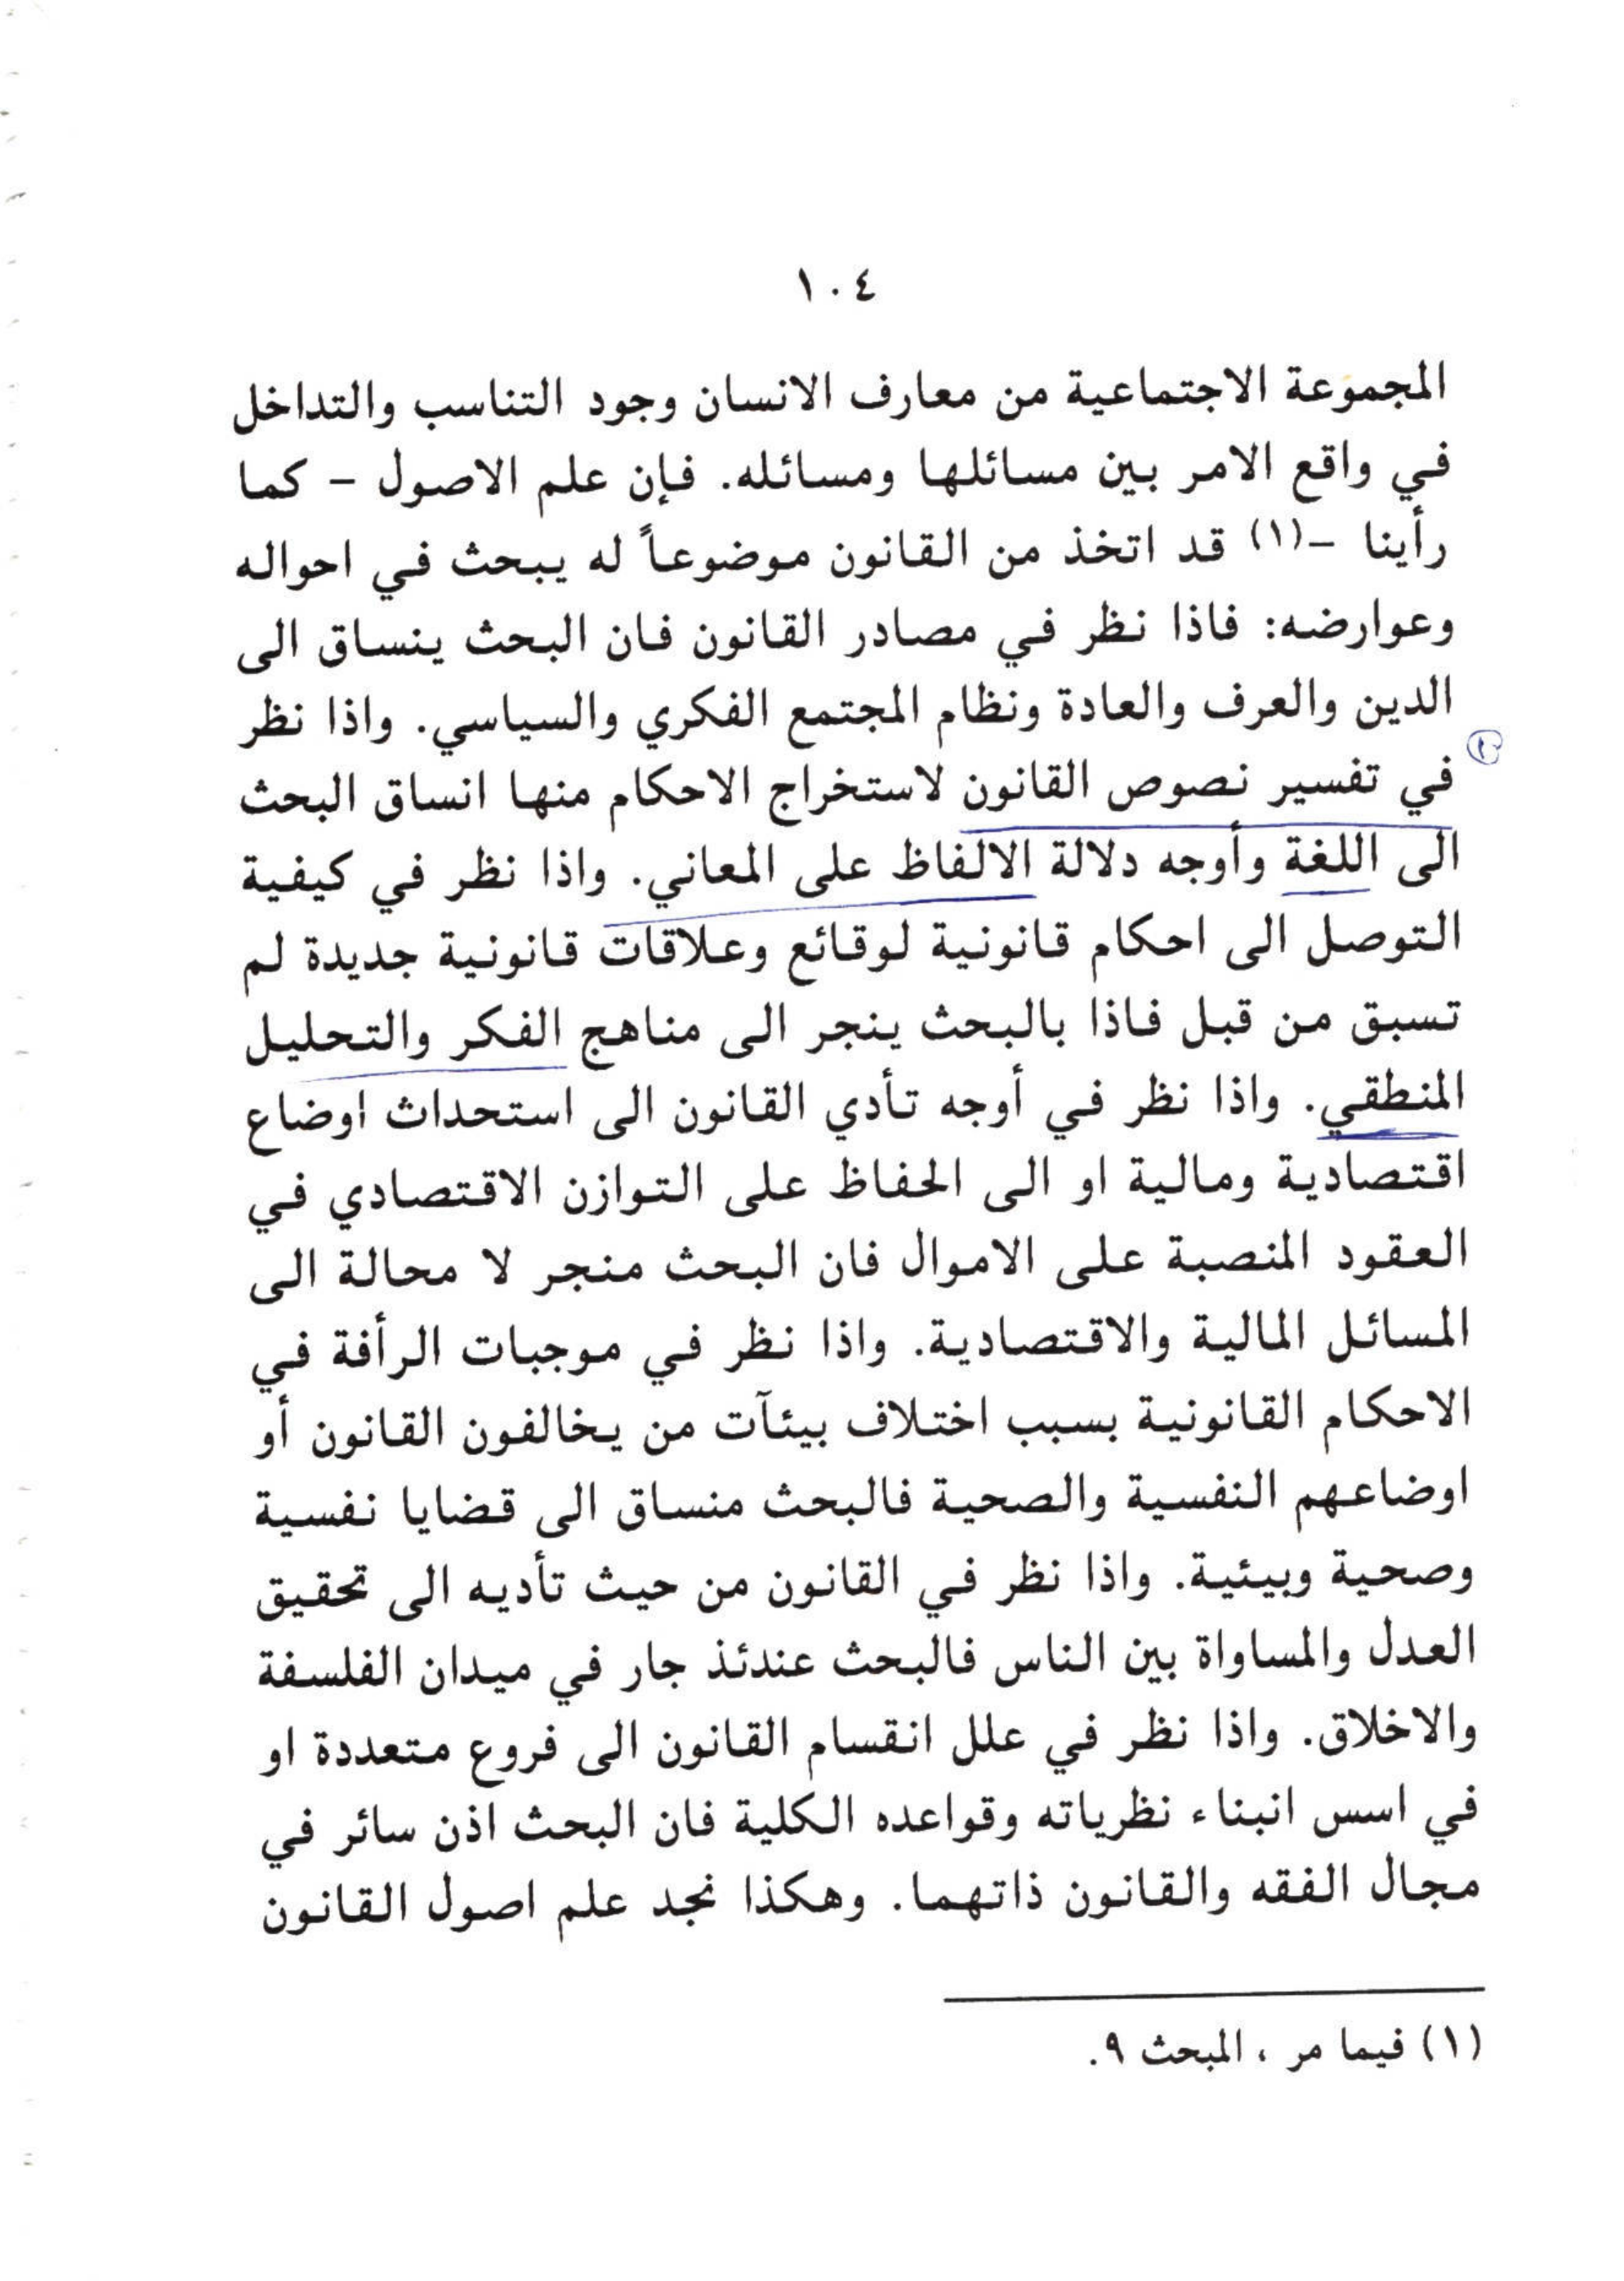 ١٠٤
المجموعة الاجتماعية من معارف الانسان وجود التناسب والتداخل
في واقع الامر بين مسائلها ومسائله. فإن علم الاصول – كما
رأينا –(١) قد اتخذ من القانون موضوعاً له يبحث في احواله
وعوارضه: فاذا نظر في مصادر القانون فان البحث ينساق الى
الدين والعرف والعادة ونظام المجتمع الفكري والسياسي. واذا نظر
في تفسير نصوص القانون لاستخراج الاحكام منها انساق البحث
الى اللغة وأوجه دلالة الالفاظ على المعاني. واذا نظر في كيفية
التوصل الى احكام قانونية لوقائع وعلاقات قانونية جديدة لم
تسبق من قبل فاذا بالبحث ينجر الى مناهج الفكر والتحليل
المنطقي. واذا نظر في أوجه تأدي القانون الى استحداث اوضاع
اقتصادية ومالية او الى الحفاظ على التوازن الاقتصادي في
العقود المنصبة على الاموال فان البحث منجر لا محالة الى
المسائل المالية والاقتصادية. واذا نظر في موجبات الرأفة في
الاحكام القانونية بسبب اختلاف بيئآت من يخالفون القانون أو
اوضاعهم النفسية والصحية فالبحث منساق الى قضايا نفسية
وصحية وبيئية. واذا نظر في القانون من حيث تأديه الى تحقيق
العدل والمساواة بين الناس فالبحث عندئذ جار في ميدان الفلسفة
والاخلاق. واذا نظر في علل انقسام القانون الى فروع متعددة او
في اسس انبناء نظرياته وقواعده الكلية فان البحث اذن سائر في
مجال الفقه والقانون ذاتهما. وهكذا نجد علم اصول القانون
(١) فيما مر ، المبحث ٩.